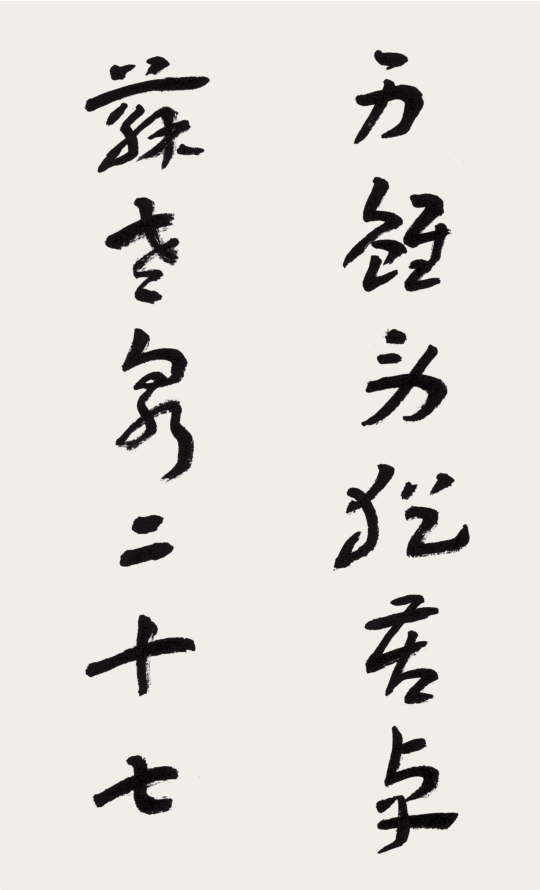 身雖勞猶苦卓
蘇老泉二十七